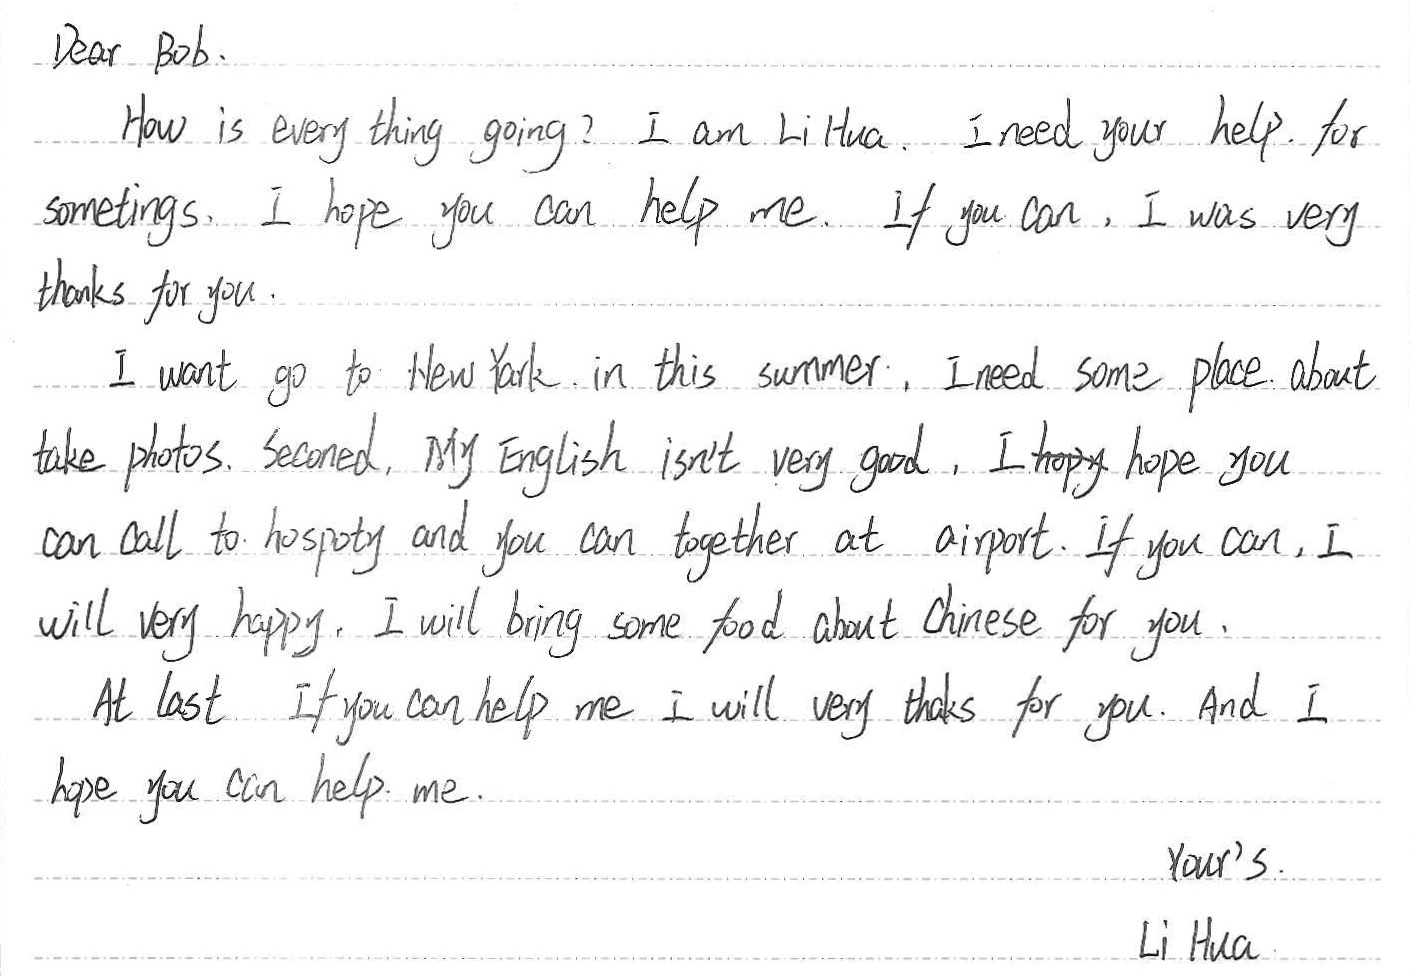 Dear Bob.
How is every thing going? I am Li Hua. I need your help. for
sometings. I hope you can help me. If you can, I was very
thanks for you.
I want go to New Yark. in this summer. I need some place. about
take photos. Seconed, My English isn't very good, I hopy hope you
can call to hospoty and you can together at airport. If you can, I
will very happy. I will bring some food about Chinese for you.
At last If you can help me I will very thaks for you. And I
hope you can help. me.
Your's.
Li Hua